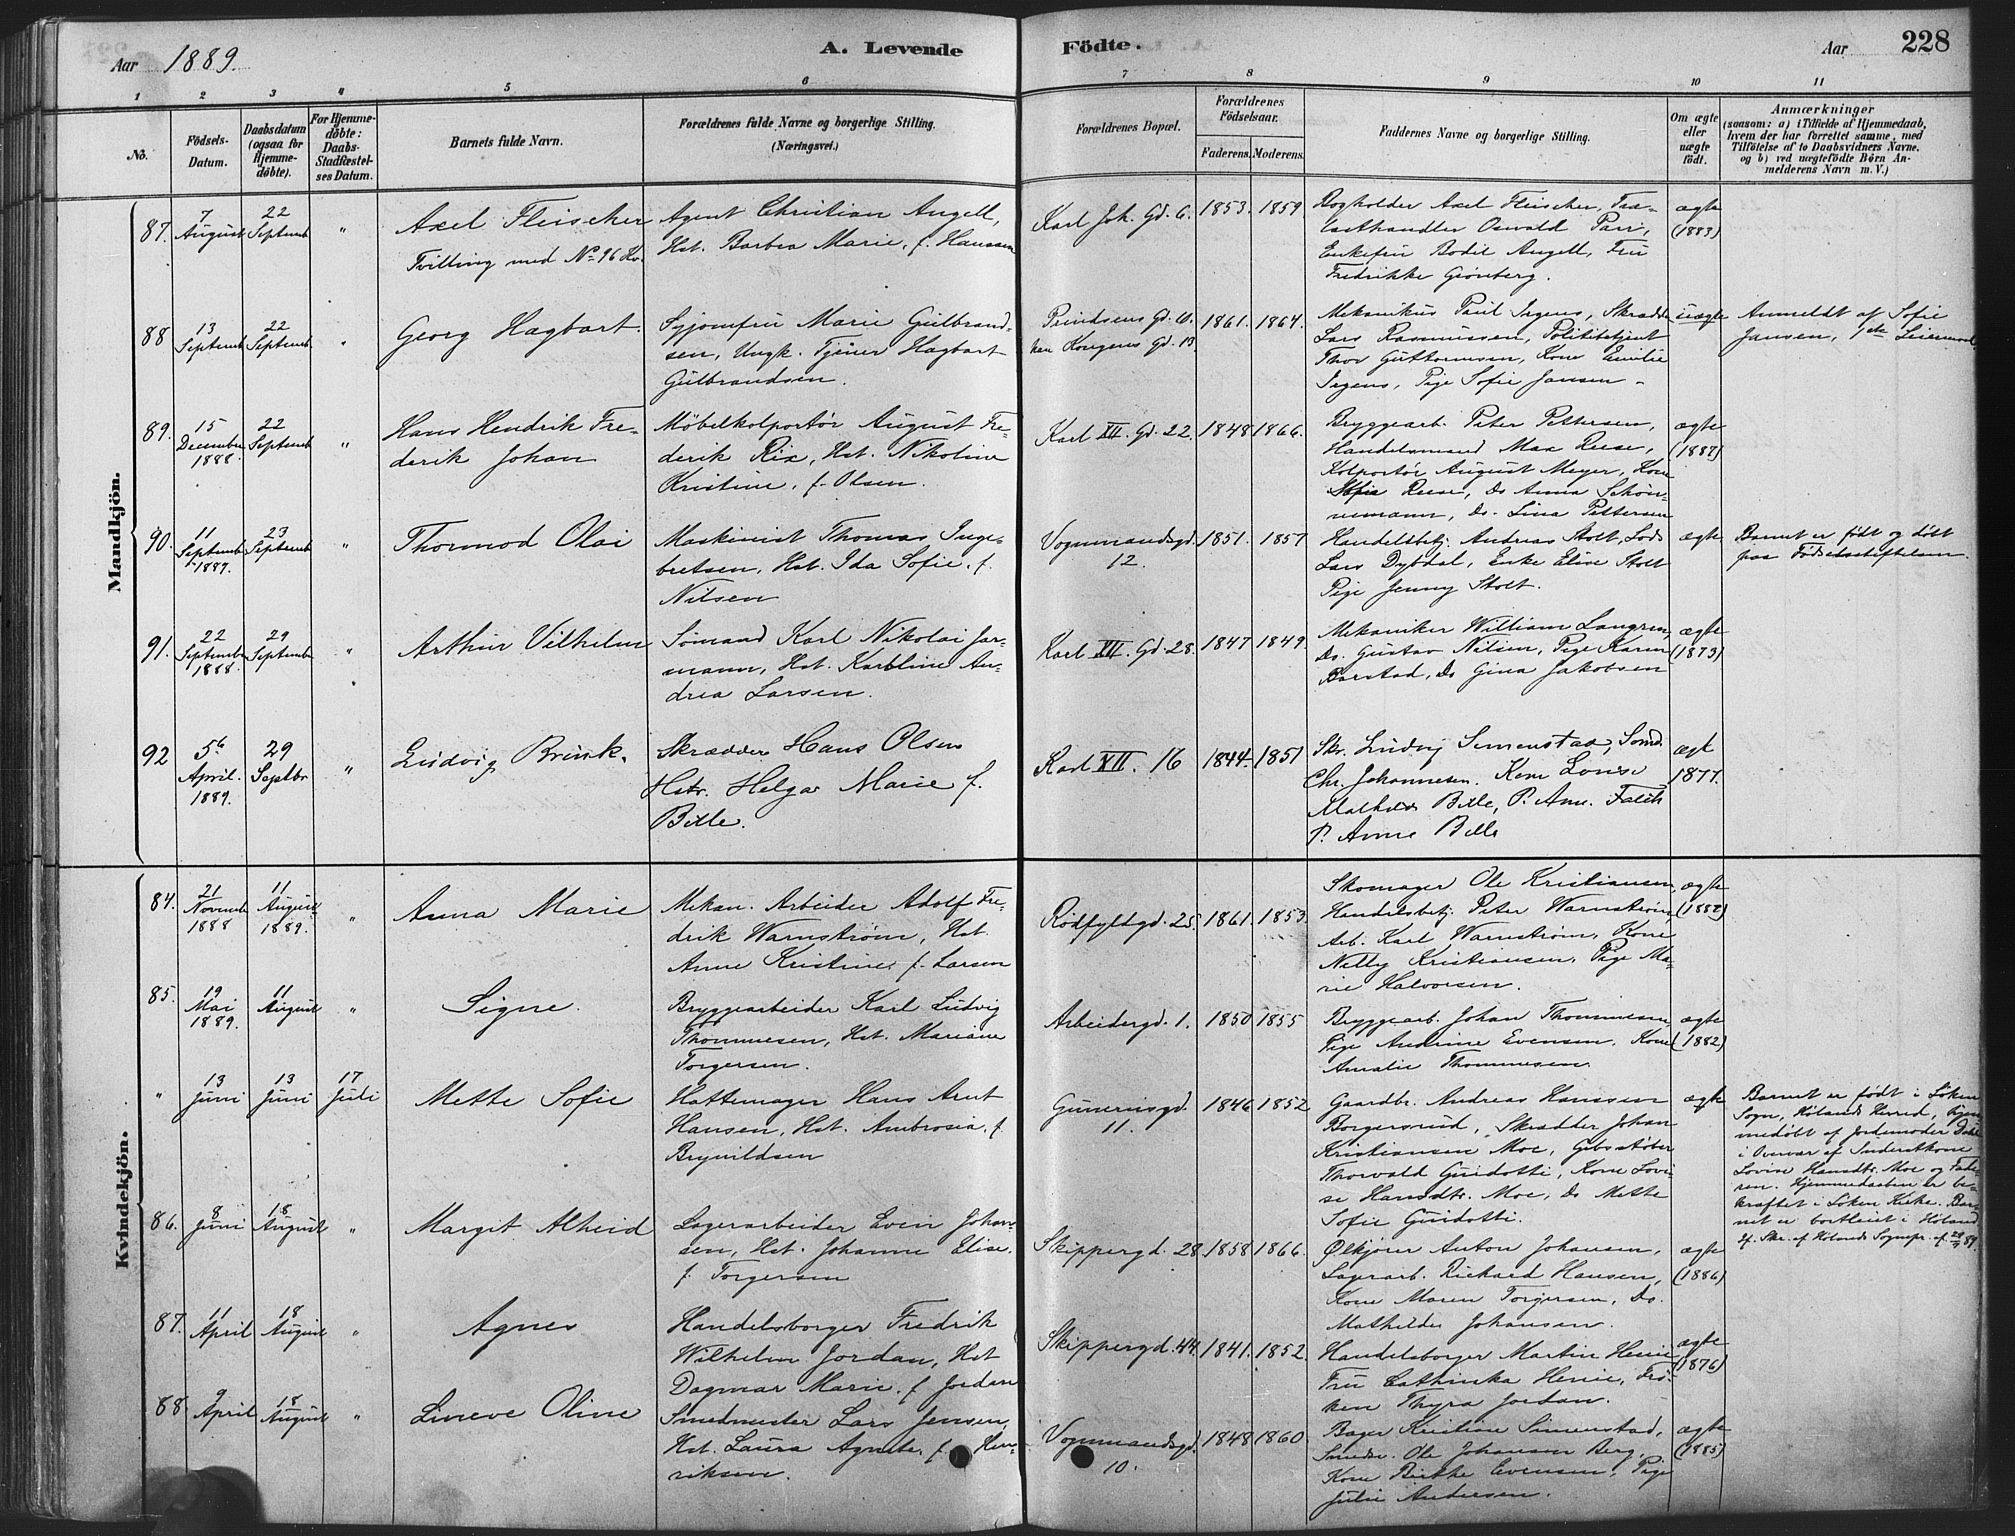 Aar 1889.
A. Levende
Födte.
Aar
228
1 2 3 4 5 6 7 8 9 10 11
No.
Födsels-
Datum.
Daabsdatum
(ogsaa for
Hjemme-
døbte).
For Hjemme-
døbte:
Daabs-
Stadfæstel-
ses Datum.
Barnets fulde Navn.
Forældrenes fulde Navne og borgerlige Stilling.
(Næringsvei.)
Forældrenes Bopæl.
Forældrenes
Födselsaar.
Faderens.
Moderens.
Faddernes Navne og borgerlige Stilling.
Om ægte
eller
uægte
født.
Anmærkninger
(saasom: a) i Tilfælde af Hjemmedaab,
hvem der har forrettet samme, med
Tilföielse af to Daabsvidners Navne.
og b) ved uægtefödte Börn An-
melderens Navn m. V.)
Mandkjön.
87.
7
August
22
Septemb
"
Axel Fleischer
Tvilling med No 96 Kv.
Agent Christian Angell,
Hst. Barbra Marie, f. Hansen
Karl Joh. Gd. 6.
1853.
1859
Rogholder Axel Fleischer, Tra-
lasthandler Oswald Parr,
Enkefru Bodil Angell, Fru
Fredrikke Grønberg.
ægte
(1883)
88
13
Septemb
22
Septemb
"
Georg Hagbart.
Syjomfru Marie Gulbrand-
sen, Ungk. Tjener Hagbart
Gulbrandsen.
Prindsens Gd.
han Kongens Gd. 13
1861.
1864.
Mekanikus Paul Irgens, Skrædder
Lars Rasmussen, Politibetjent
Thor Guttormsen, Kone Emilie
Irgens, Pige Sofie Jansen.
uægte
Anmeldt af Sofie
Jansen, 1ste Leiermaal
89.
15
December
1888.
22
Septemb
"
Hans Hendrik Fre-
derik Johan
Møbelkolportør August Fre-
derik Rix, Hst. Nikoline
Kristine, f. Olsen.
Karl XII. Gd. 22.
1848
1866.
Bryggearb. Peter Pettersen,
Handelsmand Max Reese,
Kolportør August Meyer, Kone
Sofia Reese, Do Anna Schön-
nemann, Do. Lina Pettersen
ægte
(1887)
90.
11
Septemb
1887.
23
Septemb
"
Thormod Olai
Maskinist Thomas Inge-
bretsen, Hst. Ida Sofie, f.
Nilsen
Vognmandsgd.
12.
1851.
1857
Handelsbetj. Andreas Stolt, Lods
Lars Dybdal, Enke Elise Stolt
Pige Jenny Stolt.
ægte
Barnet er født og døbt
paa Fødselsstiftelsen.
91.
22
September
1888.
29
Septemb
"
Arthur Vilhelm
Sømand Karl Nikolai Jar-
mann, Hst. Karoline An-
drea Larsen.
Karl XII. Gd. 28.
1847
1849.
Mekaniker William Langren,
Do. Gustav Nilsen, Pige Karen
Barstad, Do Gina Jakobsen
ægte
(1873)
92
5te
April.
1889.
29
Septbr
"
Ludvig Brink.
Skrædder Hans Olsen
Hstr. Helga Marie f.
Bille.
Karl XII. 16
1844.
1851
Skr. Ludvig Simenstad, Sømd.
Chr. Johannesen. Kone Louise
Mathilde Bille, P. Ane Falch
P. Anne Bille
ægt
1877.
Kvindekjön.
84.
21
Novemb
1888
11
August
1889.
"
Anna Marie
Mekan. Arbeider Adolf Fre-
drik Warnstrøm, Hst.
Anne Kristine, f. Larsen
Rødfyldgd. 25.
1861.
1853.
Skomager Ole Kristiansen,
Handelsbetj. Peter Warnstrøm
Arb. Karl Warnstrøm, Kone
Nelly Kristiansen, Pige Ma-
rie Halvorsen.
ægte
(1882)
85.
19
Mai
1889.
11
August
"
Signe.
Bryggearbeider Karl Ludvig
Thommesen, Hst. Mariane
Torgersen.
Arbeidergd. 1.
1850
1855
Bryggearb. Johan Thommesen,
Pige Andrine Evensen, Kone
Amalie Thommesen
ægte
(1882)
"
13
Juni
13
Juni
17
Juli
Mette Sofie
Hattemager Hans Arnt
Hansen, Hst. Ambrosia, f.
Brynildsen
Gunerusgd.
11.
1846
1852
Gaardbr. Andreas Hanssen
Borgersrud, Skrædder Johan
Kristiansen Moe, Gibsstøber
Thorvald Guidotti, Kone Lovi-
se Hansdtr. Moe, Do Mette
Sofie Guidotti.
ægte
Barnet er født i Løken
Sogn, Hølands Herred, hjem-
medøbt af Jordemoder Dahl
i Overvær af Inderstkone
Lovise Hansdtr. Moe og Fade-
ren. Hjemmedaaben er be-
kræftet i Løken Kirke. Bar-
net er bortleiet i Høland
cf. Skr. af Hølands Sognepr. af 29/7 89.
86.
8
Juni
18
August
"
Margit Alheid
Lagerarbeider Even Johan-
sen, Hst. Johanne Elise.
f. Torgersen
Skippergd. 28
1858
1866.
Ølkjører Anton Johansen,
Lagerarb. Rickard Hansen,
Kone Maren Torgersen, Do.
Mathilde Johansen.
ægte
(1886)
87.
11
April
18
August
"
Agnes
Handelsborger Fredrik
Wilhelm Jordan, Hst
Dagmar Marie, f. Jordan
Skippergd. 44.
1841.
1852.
Handelsborger Martin Henie
Fru Cathinka Henie, Frø-
ken Thyra Jordan.
ægte
(1876)
88
9
April
18
August
"
Lineve Oline
Smedmester Lars Jensen,
Hst. Laura Agnete, f. Hen-
riksen.
Vognmandsgd.
10.
1848
1860
Bager Kristian Simenstad,
Smedsv. Ole Johansen Berg,
Kone Birthe Evensen, Pige
Julie Andersen.
ægte
(1885)